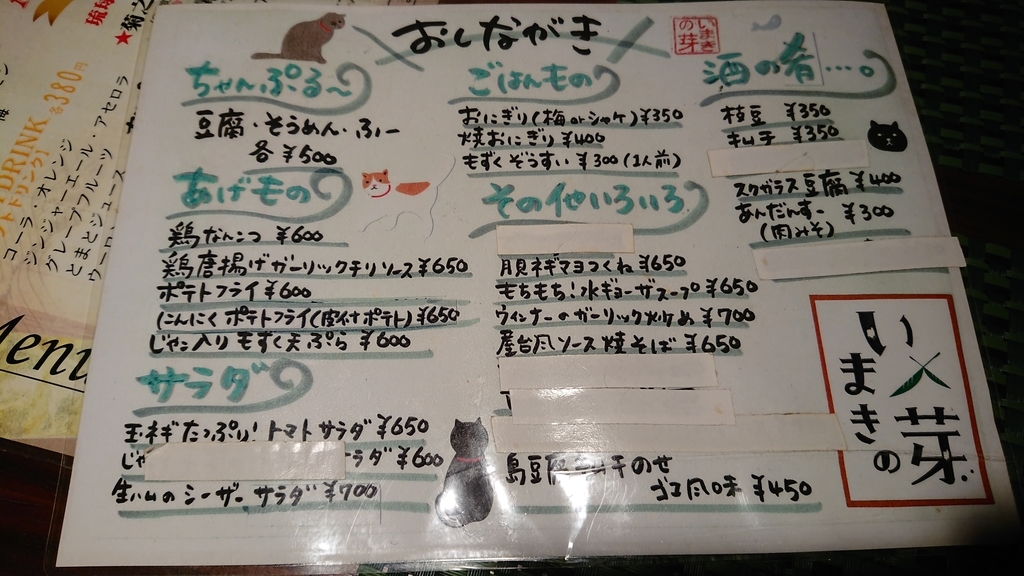 おしながき
いまき
の芽
ちゃんぷる〜
豆腐・そうめん・ふー
各¥500
あげもの
鶏なんこつ ¥600
鶏唐揚げガーリックチリソース¥650
ポテトフライ¥600
にんにくポテトフライ(皮付ポテト)¥650
じゃこ入りもずく天ぷら ¥600
サラダ
玉ネギたっぷり!トマトサラダ¥650
じゃ
ラダ¥600
生ハムのシーザーサラダ¥700
ごはんもの
おにぎり(梅orシャケ)¥350
焼おにぎり ¥400
もずくぞうすい ¥300(1人前)
その他いろいろ
月見ネギマヨつくね¥650
もちもち!水ギョーザスープ¥650
ウィンナーのガーリック炒め¥700
屋台風ソース焼そば¥650
島豆腐キムチのせ
ゴマ風味¥450
酒の肴…。
枝豆 ¥350
キムチ ¥350
スクガラス豆腐¥400
あんだんすー ¥300
(肉みそ)
いまきの
芽
DRINK 各380円
コーラ・オレンジ
ジンジャーエール・アセロラ
グレープフルーツ・
とまとジュース
琉球
★菊之
Menu